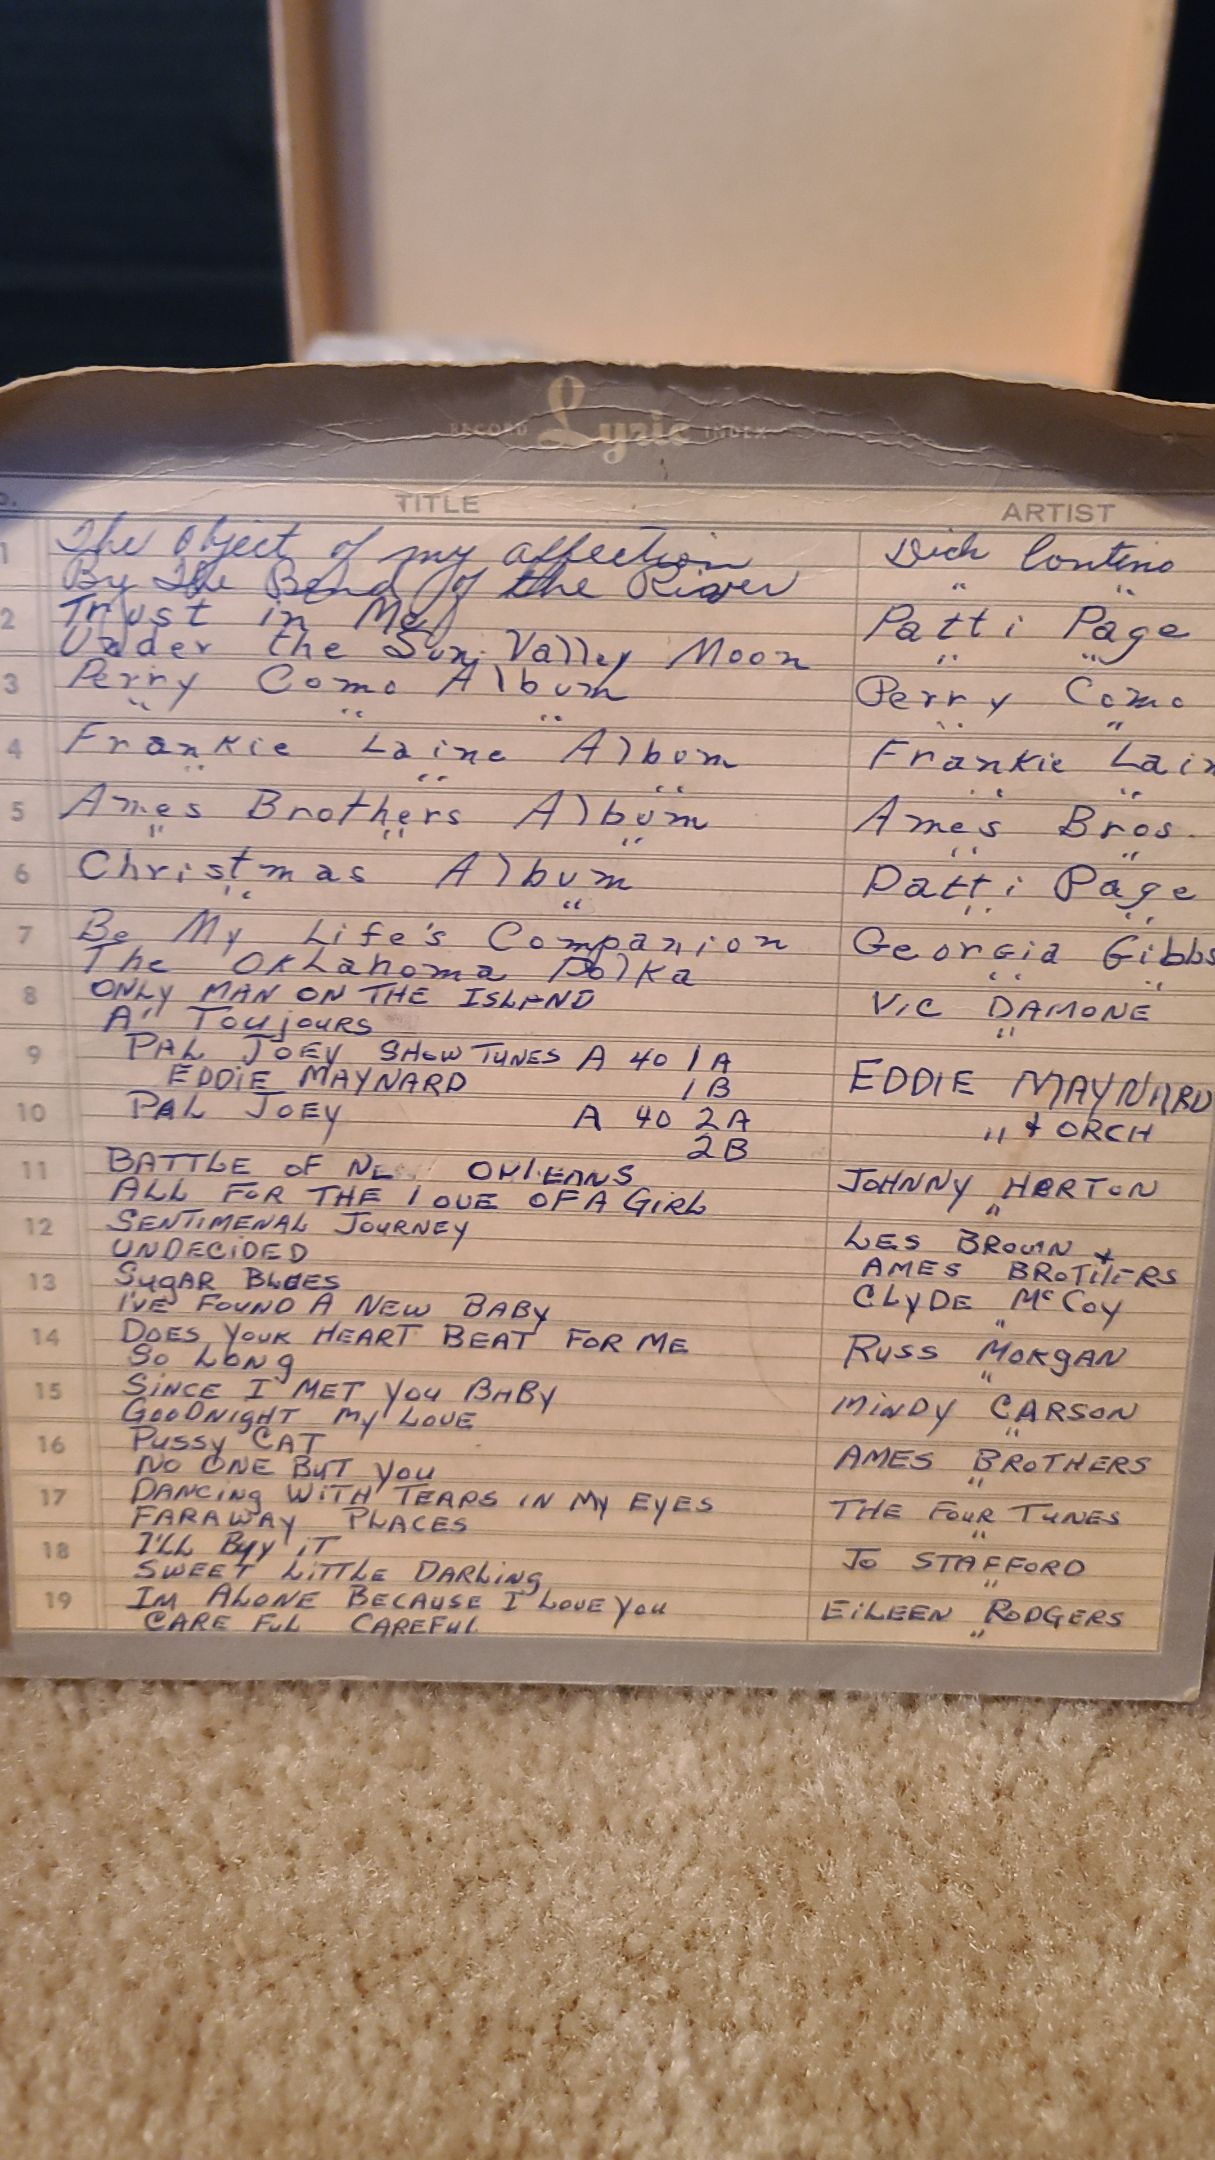 RECORD Lyric INDEX
TITLE ARTIST
1 The Object of my affection Dick Contino
By The Bend of the River " "
2 Trust in Me Patti Page
Under the Sun Valley Moon " "
3 Perry Como Album Perry Como
" " " " "
4 Frankie Laine Album Frankie Lain
" " " " "
5 Ames Brothers Album Ames Bros.
" " " " "
6 Christmas Album Patti Page
" " " "
7 Be My Life's Companion Georgia Gibbs
The Oklahoma Polka " "
8 ONLY MAN ON THE ISLAND VIC DAMONE
A" TOUJOURS "
9 PAL JOEY SHOW TUNES A 40 1A EDDIE MAYNARD
EDDIE MAYNARD 1B
10 PAL JOEY A 40 2A " & ORCH
2B
11 BATTLE OF ORLEANS JOHNNY HORTON
ALL FOR THE LOVE OF A GIRL "
12 SENTIMENAL JOURNEY LES BROWN &
UNDECIDED AMES BROTHERS
13 SUGAR BLUES CLYDE McCOY
I'VE FOUND A NEW BABY "
14 DOES YOUR HEART BEAT FOR ME RUSS MORGAN
SO LONG "
15 SINCE I MET YOU BABY MINDY CARSON
GOODNIGHT MY LOVE "
16 PUSSY CAT AMES BROTHERS
NO ONE BUT YOU "
17 DANCING WITH TEARS IN MY EYES THE FOUR TUNES
FARAWAY PLACES "
18 I'LL BUY IT JO STAFFORD
SWEET LITTLE DARLING "
19 IM ALONE BECAUSE I LOVE YOU EILEEN RODGERS
CARE FUL CAREFUL "